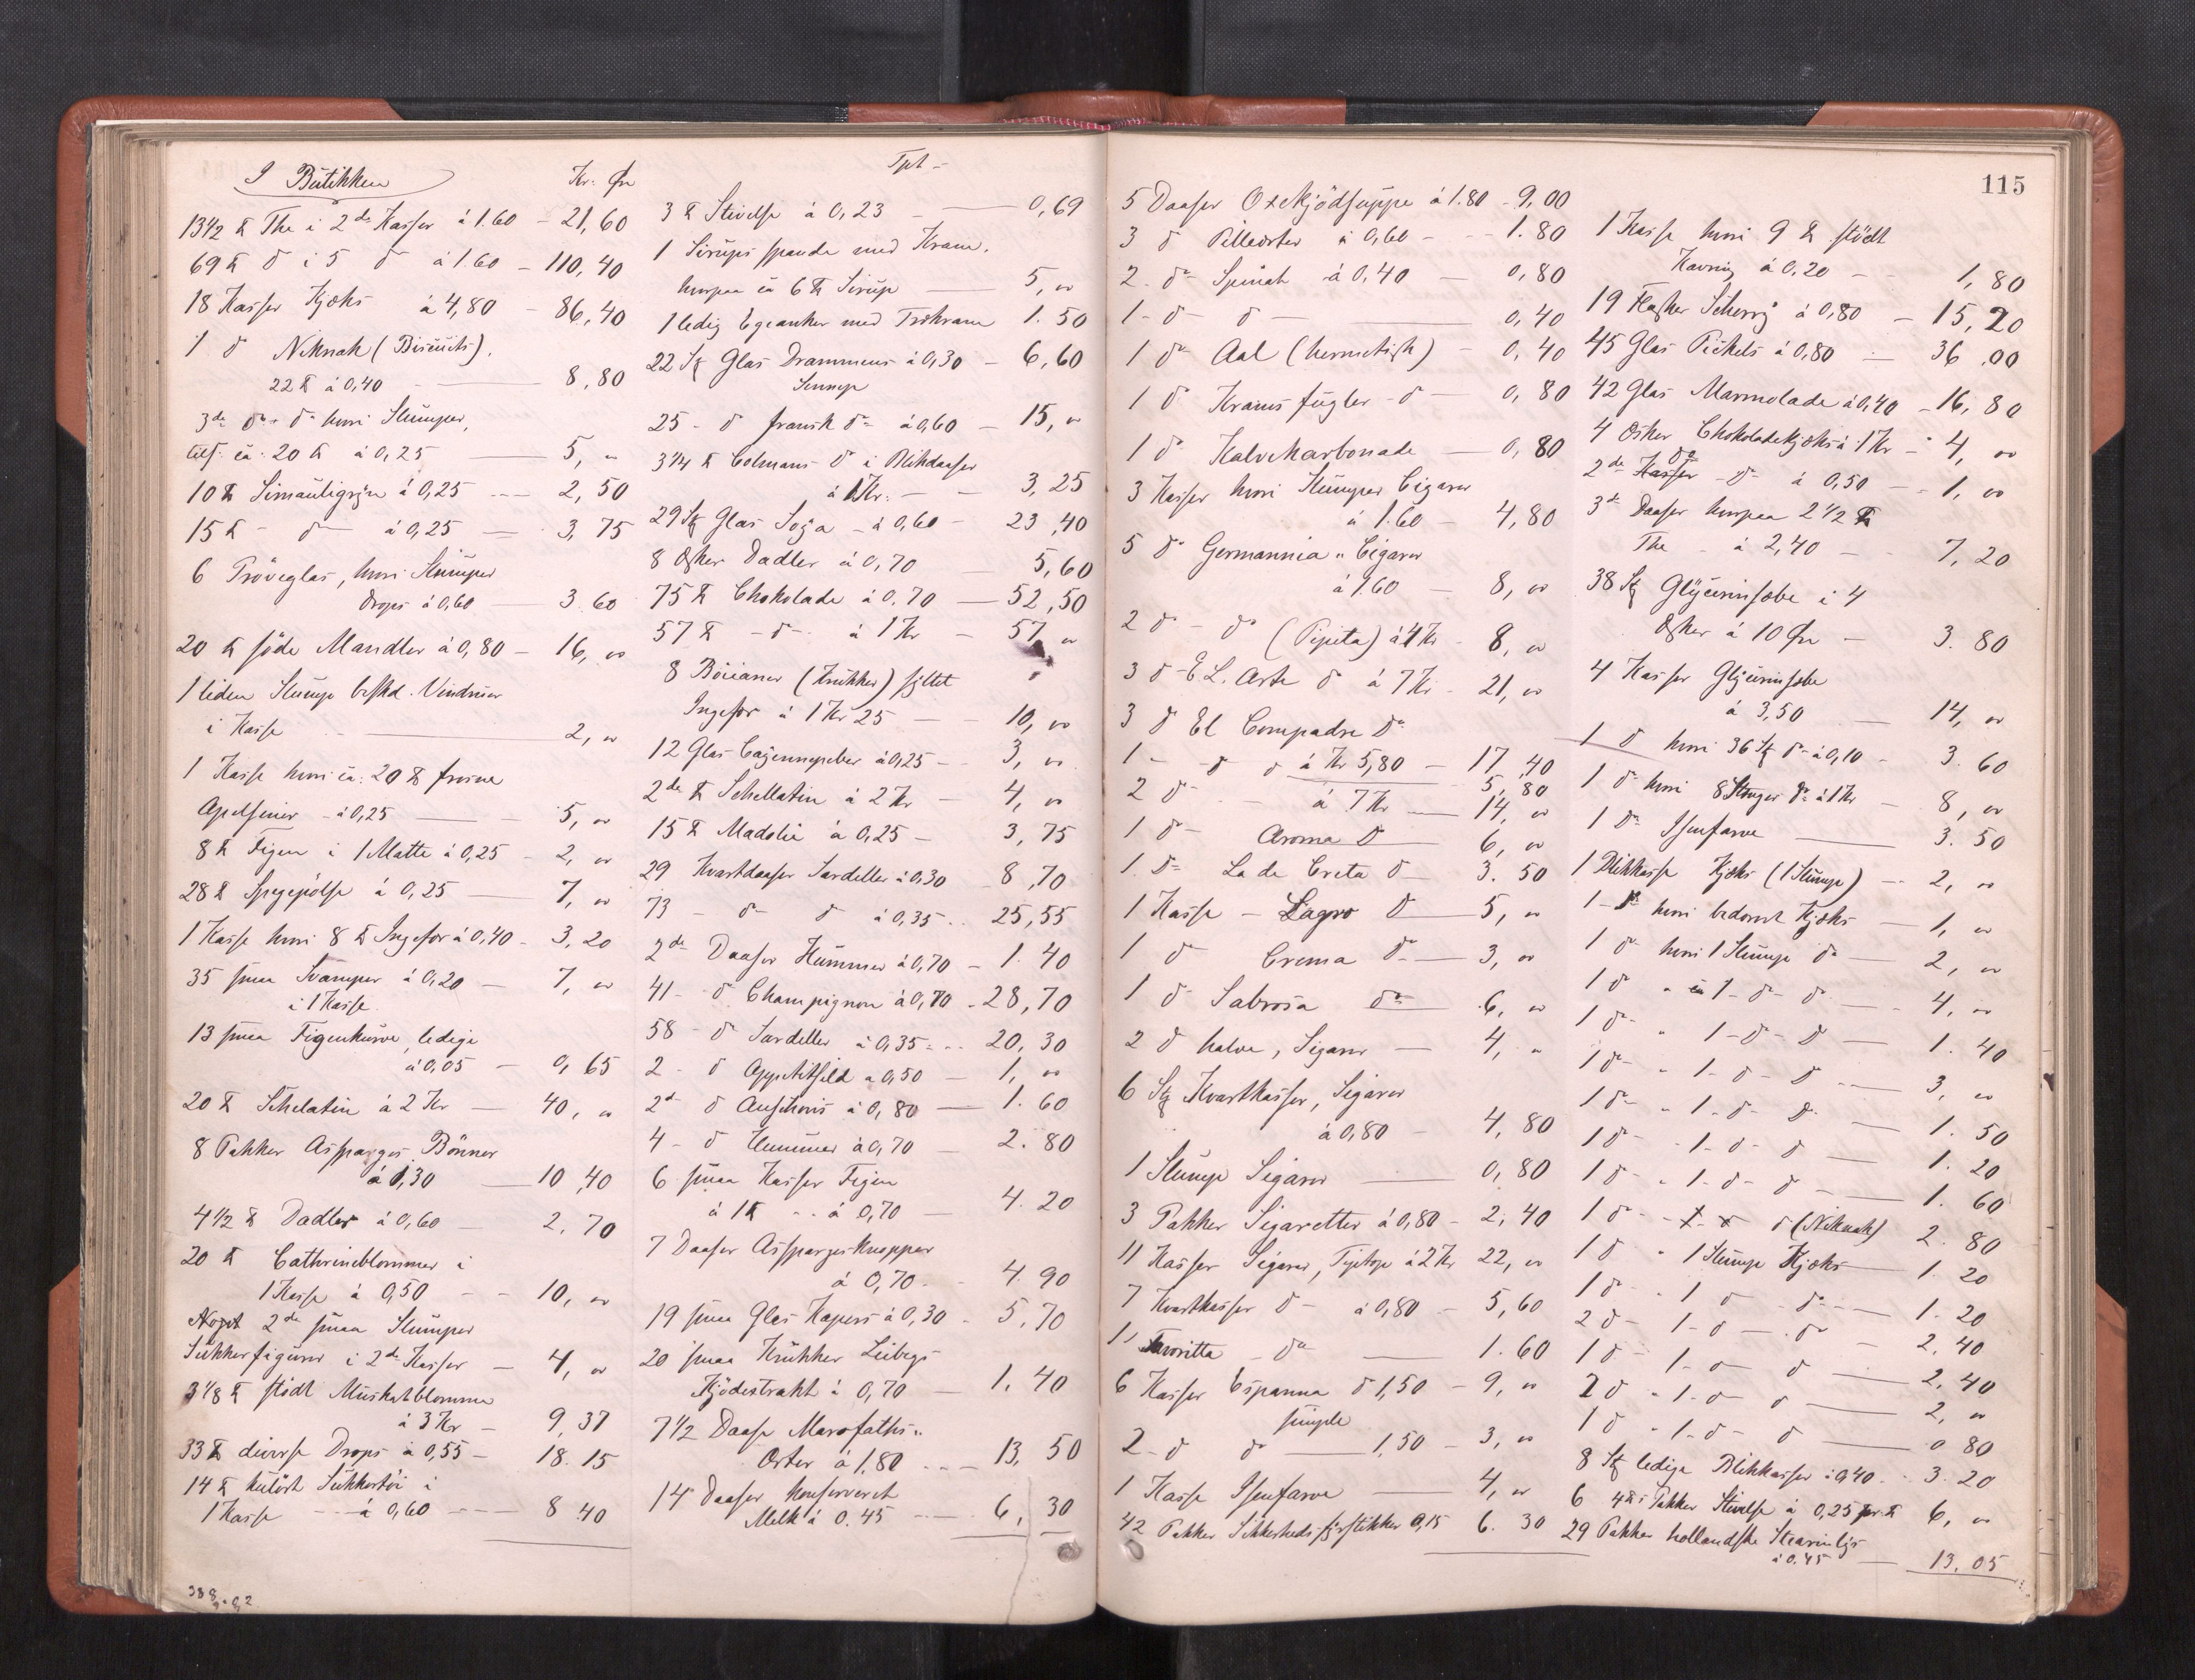 I Butikken Kr. Øre
13 1/2 ℔ The i 2de Kasser á 1.60 - 21,60
69 ℔ do i 5 do á 1.60 - 110,40
18 Kasser Kjæks á 4,80 - 86,40
1 do Niknak (Biscuits),
22 ℔ á 0,40 - 8,80
3de do - do hvori Slumper,
tils. ca. 20 ℔ á 0,25 5, "
10 ℔ Simuligryn á 0,25 2,50
15 ℔ - do á 0,25 - 3,75
6 Prøveglas, hvori Slumper
Drops á 0,60 3.60
20 ℔ søde Mandler á 0,80 - 16, oo
1 liden Slump beskd. Vindruer
i Kasse 2, oo
1 Kasse hvori ca. 20 ℔ frosne
Apelsiner - á 0,25 5, oo
8 ℔ Figen i 1 Matte á 0,25 - 2, oo
28 ℔ Spegepølse á 0,25 7, oo
1 Kasse hvori 8 ℔ Ingefær á 0,40 - 3,20
35 smaa Svamper á 0,20 - 7, oo
i 1 Kasse
13 smaa Figenkurve, ledige
á 0,05 - 0,65
20 ℔ Schelatin á 2 Kr - 40, oo
8 Pakker Asparges Bønner
á 1,30 10,40
4 1/2 ℔ Dadler á 0,60 - 2,70
20 ℔ Cathrineblommer i
1 Kasse á 0,50 - - 10, oo
Noget 2de smaa Slumper
Sukkerfigurer i 2de Kasser - 4, oo
3 1/8 ℔ stødt Muskatblomme
á 3 Kr - 9,37
33 ℔ diverse Drops á 0,55 - 18.15
14 ℔ kulørt Sukkertøi i
1 Kasse - á 0,60 - 8.40
Tpt -
3 ℔ Stivelse á 0,23 - 0,69
1 Sirups spande med Kran,
hvorpaa ca 6 ℔ Sirup 5, oo
1 ledig Egeanker med Trækran 1.50
22 St Glas Drammens á 0,30 - 6,60
Sennep
25 - do fransk do á 0,60 - 15, oo
3 1/4 ℔ Colmans do i Blikdaaser
á 1 Kr. - 3,25
29 St Glas Soya - á 0,60 - 23,40
8 Æsker Dadler á 0,70 5,60
75 ℔ Chokolade á 0.70 - 52,50
57 ℔ - do - á 1 Kr - 57, oo
8 Bøiianer (Krukker) syltet
Ingefær á 1 Kr 25 - 10, oo
12 Glas Cayennepeber á 0,25 - 3, oo
2de ℔ Schellatin á 2 Kr - 4, oo
15 ℔ Madolie á 0,25 - 3,75
29 Kvartdaaser Sardeller á 0,30 8,70
73 - do - do á 0,35 .. 25,55
2de Daaser Hummer á 0,70 - 1.40
41 - do Champignon á 0,70 - 28,70
58 - do Sardeller á 0,35 - 20,30
2 - do Appetitsild á 0,50 - 1, oo
2de do Anschovis á 0,80 - 1.60
4 - do Hummer á 0,70 - 2.80
6 smaa Kasser Figen
á 1 ℔ - á 0,70 - 4.20
7 Daaser Aspargesknopper
á 0,70 - 4.90
19 smaa Glas Kapers á 0,30 - 5.70
20 smaa Krukker Leibegs
Kjødextrakt á 0,70 - 1.40
7 1/2 Daase Marofaths"
Oster á 1,80 - 13,50
14 Daaser konserveret
Melk á 0.45 - 6,30
115
5 Daaser Oxekjødsuppe á 1.80 - 9,00
3 do Pilleoster á 0,60 - 1.80
2. do Spinat á 0,40 - 0,80
1 - do - do - 0,40
1 do Aal (hermetisk) - 0,40
1 do Kramsfugler - do - 0,80
1 do Kalvekarbonade - 0,80
3 Kasser hvori Slumper Cigarer
á 1.60 - 4,80
5 do Germannia " Cigarer
á 1.60 - 8, oo
2 do - do (Pipita) á 4 Kr - 8, oo
3 do - E L. Arte do á 7 Kr - 21, oo
3 do El Compadre do
1 - do do á Kr 5,80 - 17,40
5,80
2 do - á 7 Kr - 14, oo
1 do - Aroma do 6, oo
1. do La de Creta do - 3.50
1 Kasse - Lagro do - 5, oo
1 do Crema do - 3, oo
1 do Sabrosa do 6, oo
2 do halve, Sigarer - 4, "
6 St Kvartkasser, Sigarer
á 0,80 - 4,80
1 Slump Sigarer 0,80
3 Pakker Sigaretter á 0,80 - 2,40
11 Kasser Sigarer, Tiptop á 2 Kr 22, oo
7 Kvartkasser do - á 0,80 - 5,60
1" Favoritta - do 1.60
6 Kasser Espanna do 1,50 - 9, oo
simple
2 - do do 1,50 - 3, oo
1 Kasse Isenfarve 4, oo
42 Pakker Sikkerheds fyrstikker 0,15 6.30
1 Kasse hvori 9 ℔ stødt
Kavring á 0,20 - 1,80
19 Flasker Scherry á 0,80 - 15,20
45 Glas Pickels á 0,80 - 36,00
42 Glas Marmolade á 0,40 - 16,80
4 Æsker Chokoladekjæks á 1 Kr - 4, oo
do
2de Kasser - do - á 0,50 - 1, oo
3de Daaser hvorpaa 2 1/2 ℔
The - á 2,40 - 7,20
38 St Glycerinsæbe i 4
Æsker á 10 Øre - 3.80
4 Kasser Glycerinsæbe
á 3,50 - 14, oo
1 do hvori 36 St do á 0,10 - 3.60
1 do hvori 8 Stænger do á 1 Kr - 8, oo
1 do Isenfarve 3.50
1 Blikkasse Kjæks (1 Slump) - 2, oo
1 - do hvori bedærvet Kjæks 1, oo
1 do hvori 1 Slump do - 2, oo
1 do " ca 1 - do - do - 4, oo
1 do " 1 - do - do - 1.40
1 do - " 1 - do - do - 3, oo
1 do " 1 - do - do - 1.50
1 do - " 1 - do - do 1.20
1 do - " 1 - do - do - 1.60
1 do - - do (Niknak) 2.80
1 do " 1 Slump Kjæks - 1.20
1 do - 1 do - do - 1.20
2 do - 1 - do - do - 2.40
1 do - 1 - do - do - 2,40
2 do " 1 - do - do 2, oo
1 do " 1 - do - do 0 80
8 St ledige Blikkasser á 0,40 - 3.20
6 4℔s Pakker Stivelse á 0,25 pr. ℔ 6, oo
29 Pakker hollandske Stearinlys
á 0.45 - 13,05